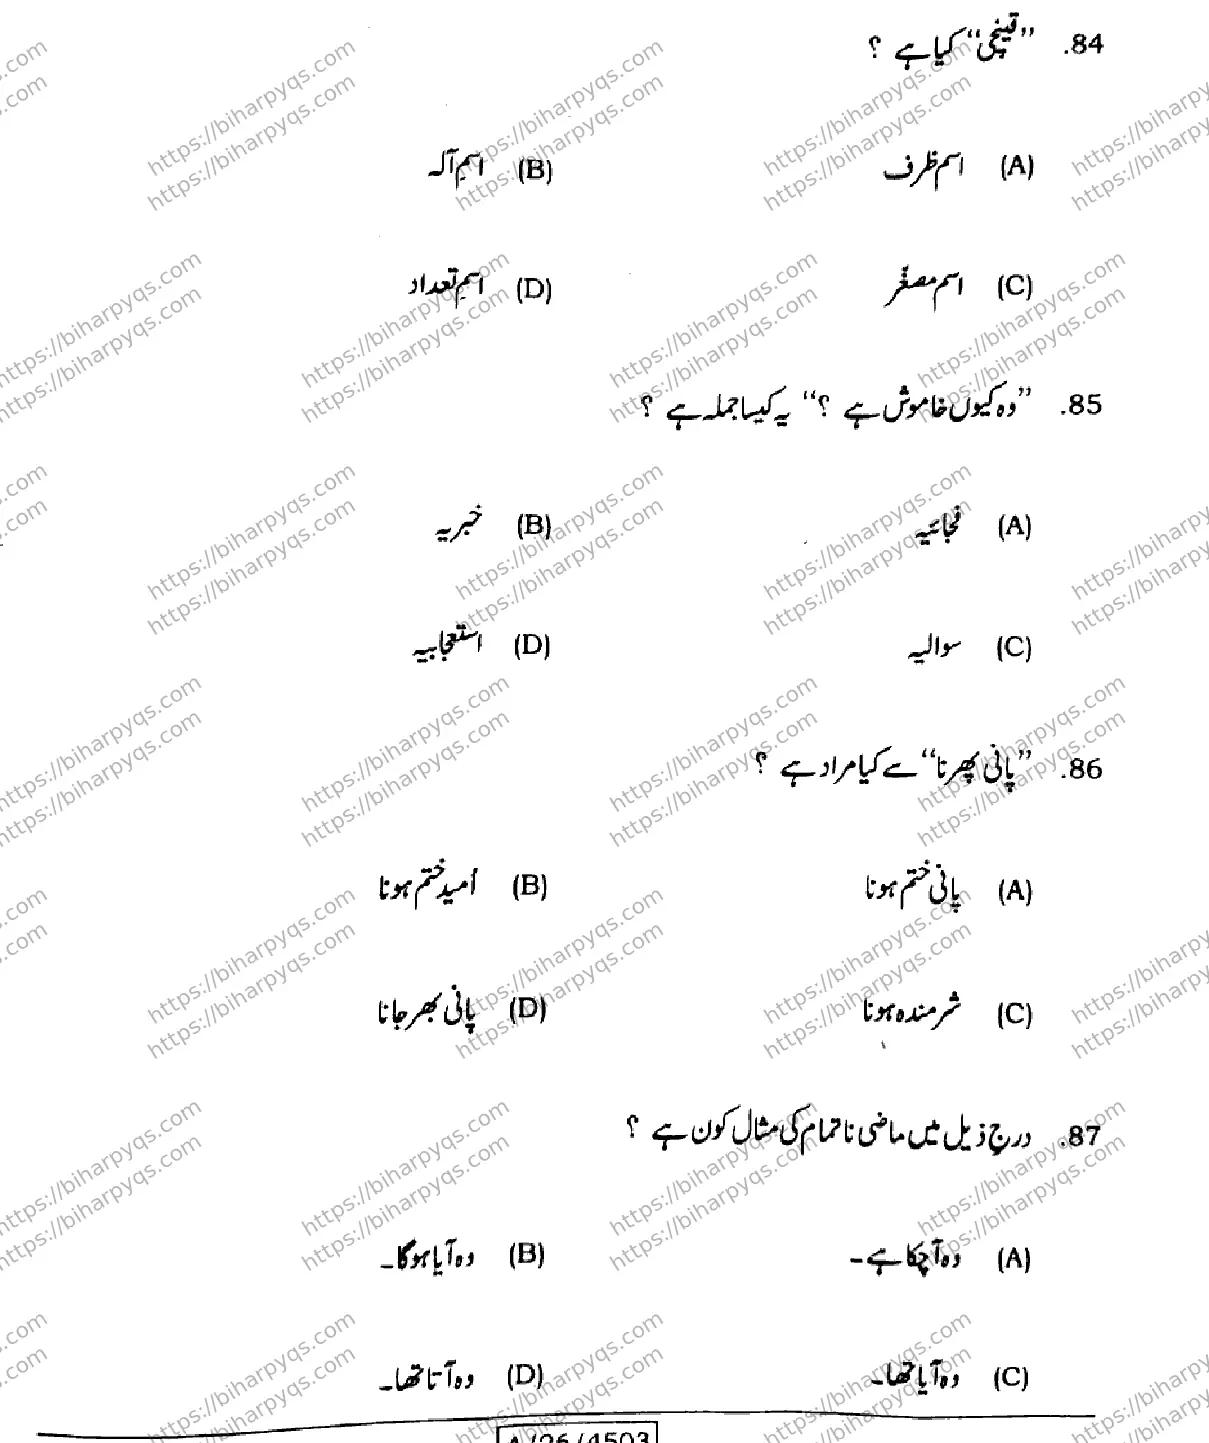 84. ”قینچی“ کیا ہے ؟
(A) اسم ظرف (B) اسمِ آلہ
(C) اسم مصغّر (D) اسمِ تعداد
85. ”وہ کیوں خاموش ہے ؟“ یہ کیسا جملہ ہے ؟
(A) فجائیہ (B) خبریہ
(C) سوالیہ (D) استعجابیہ
86. ”پانی پھرنا“ سے کیا مراد ہے ؟
(A) پانی ختم ہونا (B) اُمید ختم ہونا
(C) شرمندہ ہونا (D) پانی بھر جانا
87. درج ذیل میں ماضی ناتمام کی مثال کون ہے ؟
(A) وہ آچکا ہے۔ (B) وہ آیا ہوگا۔
(C) وہ آیا تھا۔ (D) وہ آتا تھا۔
A/26/4503
https://biharpyqs.com